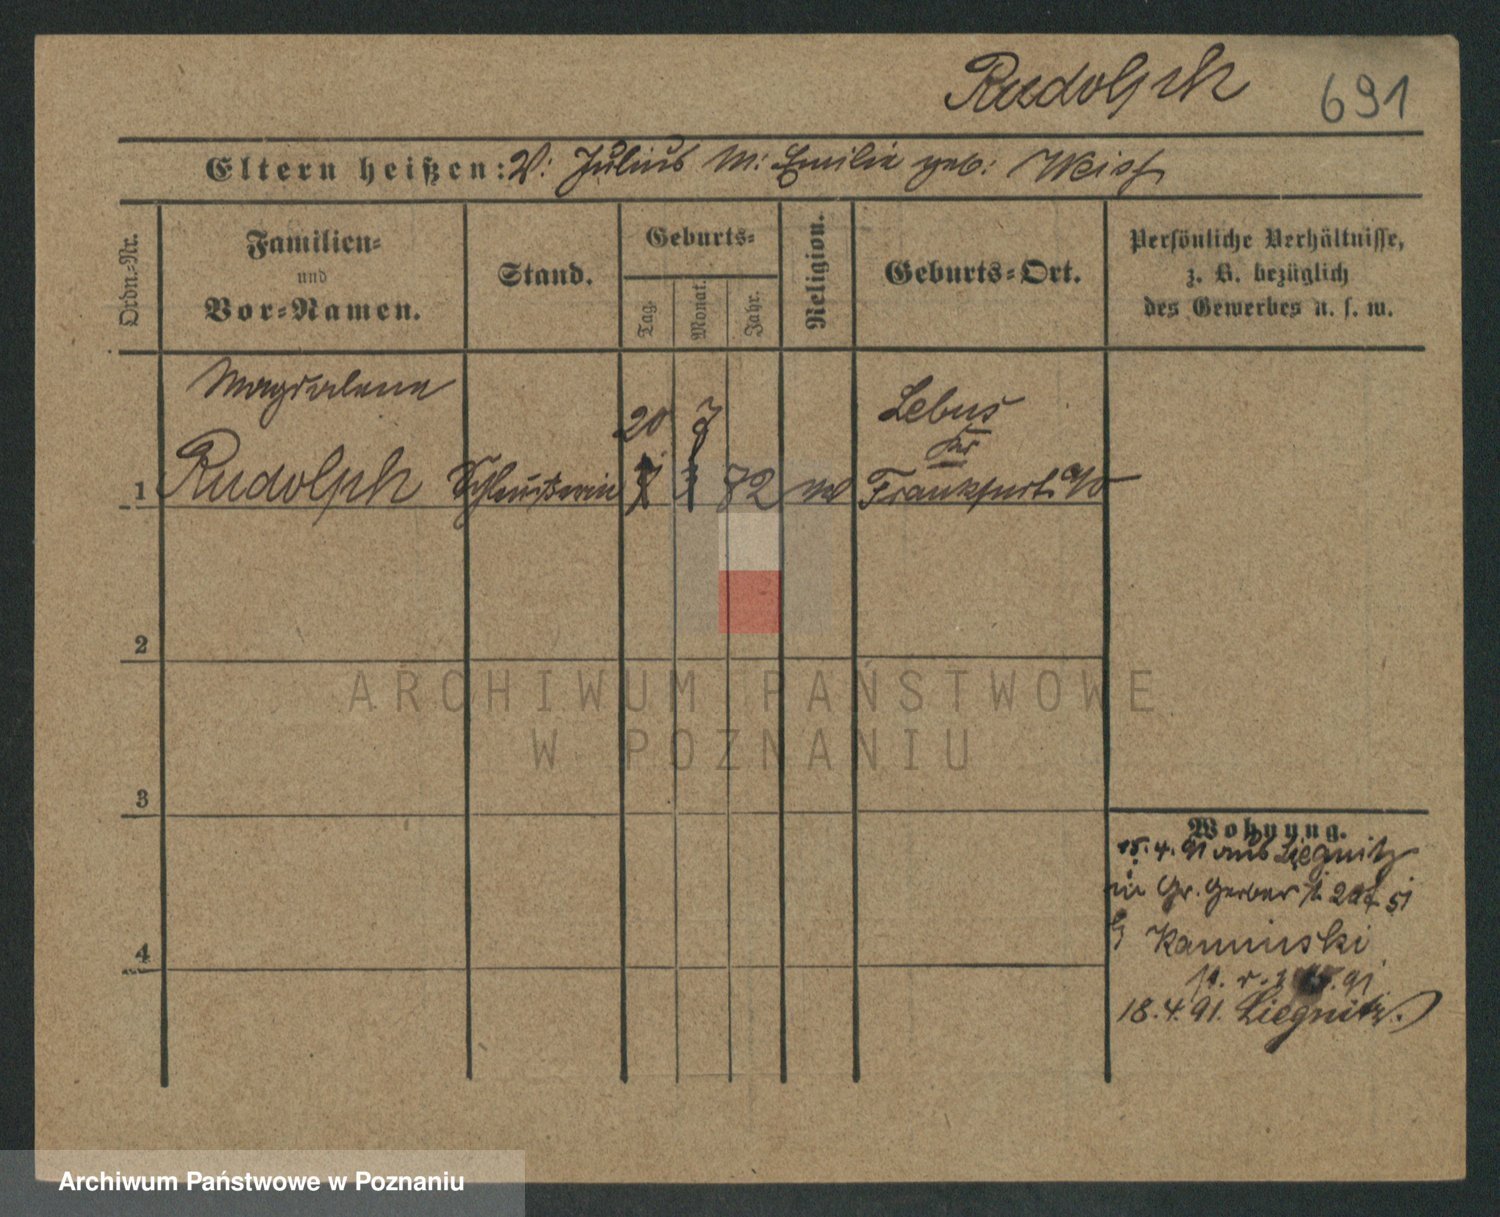 Rudolph 691
Eltern heißen: V: Julius M: Emilie geb: Weiss
Ordn.-Nr.
Familien-
und
Vor-Namen.
Stand.
Geburts-
Tag.
Monat.
Jahr.
Religion.
Geburts-Ort.
Persönliche Verhältnisse,
z. B. bezüglich
des Gewerbes u. s. w.
Magdalena
Rudolph
20 7
72
Lebus
Kr
Frankfurt a/O
1
2
3
4
Wohnung.
15.4.91 aus Liegnitz
Gr. Gerber
Kaminski
18.4.91. Liegnitz.
ARCHIWUM PAŃSTWOWE
W POZNANIU
Archiwum Państwowe w Poznaniu